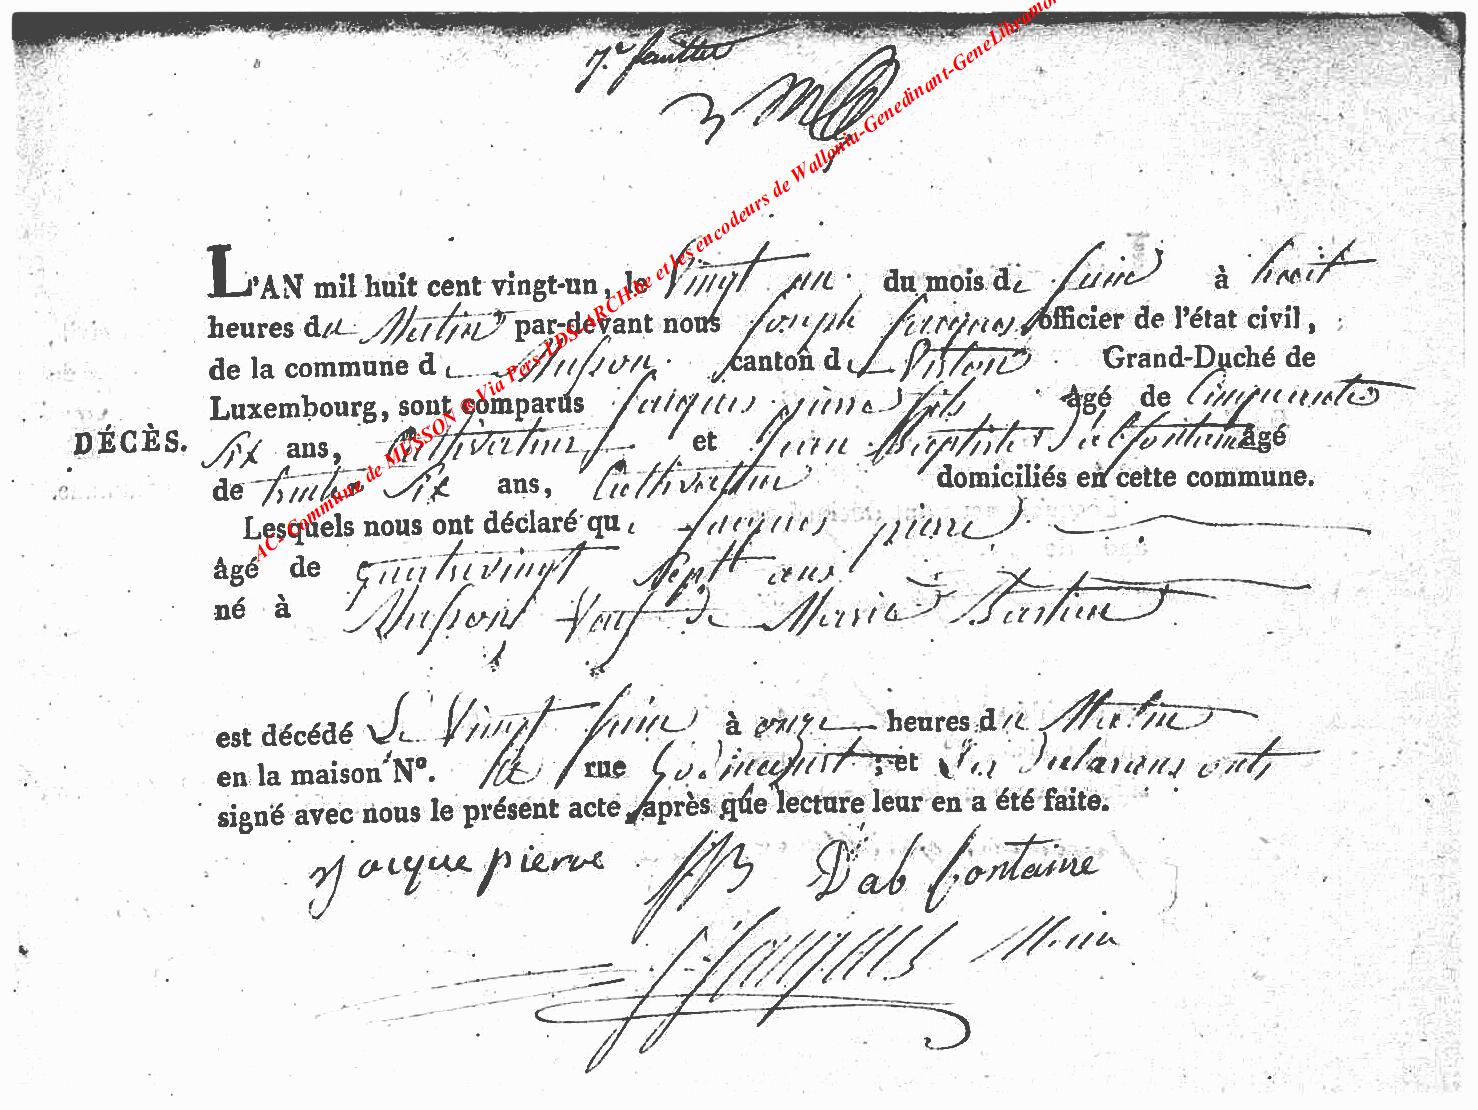 7.e feuillet
L'AN mil huit cent vingt-un, le vingt un du mois de juin à huit
heures du Matin par-devant nous Joseph Jacques officier de l'état civil,
de la commune de Musson canton de Virton Grand-Duché de
Luxembourg, sont comparus Jacques pierre fils âgé de Cinquante
DÉCÈS.
Six ans, Cultivateur et Jean Baptiste D'abfontaine âgé
de trente Six ans, Cultivateur domiciliés en cette commune.
Lesquels nous ont déclaré que Jacques pierre
âgé de quatrevingt Sept ans
né à Musson Veuf de Marie Bastin
est décédé Le Vingt juin à onze heures du Matin
en la maison N°. rue ; et Les Declarans ont
signé avec nous le présent acte, après que lecture leur en a été faite.
Jacque pierre JB D'abfontaine
J Jacques Maire
AC- Commune de MUSSON ® Via Pers-LDS-ARCH.be et les encodeurs de Wallonia-Genedinant-GeneLibramo